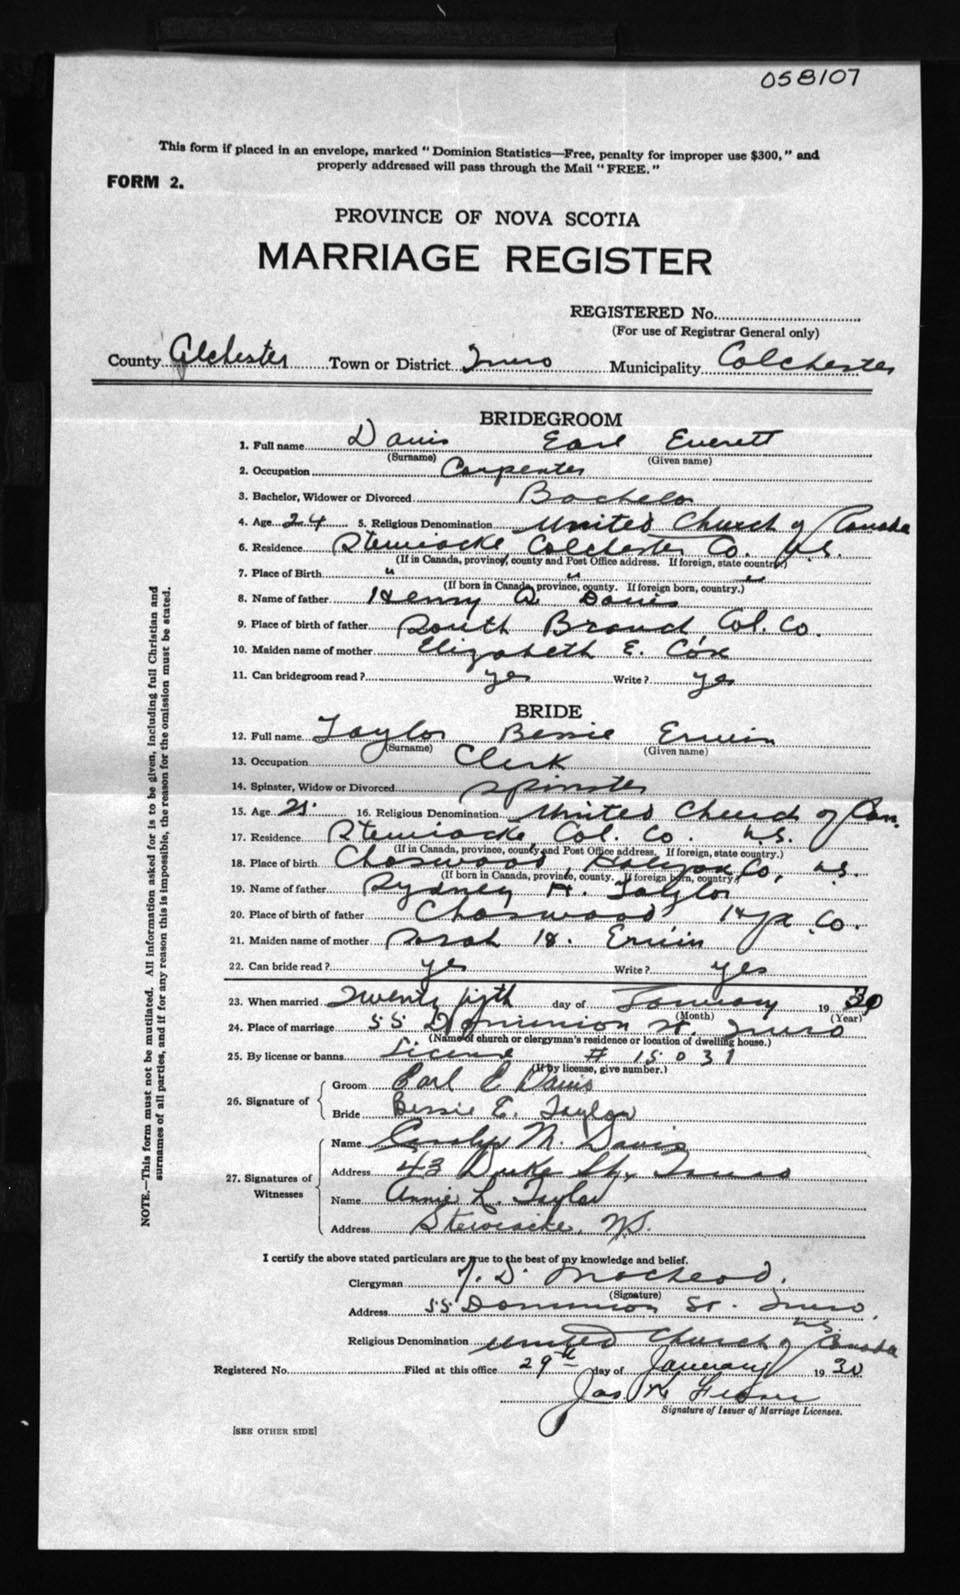 058107
This form if placed in an envelope, marked "Dominion Statistics—Free, penalty for improper use $300," and
properly addressed will pass through the Mail "FREE."
FORM 2.
PROVINCE OF NOVA SCOTIA
MARRIAGE REGISTER
REGISTERED No.
(For use of Registrar General only)
County Colchester Town or District Truro Municipality Colchester
BRIDEGROOM
1. Full name Davis Earl Everett
(Surname) (Given name)
2. Occupation Carpenter
3. Bachelor, Widower or Divorced Bachelor
4. Age 24 5. Religious Denomination United Church of Canada
6. Residence Stewiacke Colchester Co. N.S.
(If in Canada, province, county and Post Office address. If foreign, state country.)
7. Place of Birth " " "
(If born in Canada, province, county. If foreign born, country.)
8. Name of father Henry A. Davis
9. Place of birth of father South Branch, Col. Co.
10. Maiden name of mother Elizabeth E. Cox
11. Can bridegroom read? yes Write? yes
BRIDE
12. Full name Taylor Bessie Erwin
(Surname) (Given name)
13. Occupation Clerk
14. Spinster, Widow or Divorced Spinster
15. Age 21 16. Religious Denomination United Church of Can.
17. Residence Stewiacke Col. Co. N.S.
(If in Canada, province, county and Post Office address. If foreign, state country.)
18. Place of birth Chaswood, Halifax Co, N.S.
(If born in Canada, province, county. If foreign born, country.)
19. Name of father Sydney H. Taylor
20. Place of birth of father Chaswood Hfx Co.
21. Maiden name of mother Sarah H. Erwin
22. Can bride read? yes Write? yes
23. When married Twenty fifth day of January 1930
(Month) (Year)
24. Place of marriage 55 Dominion St. Truro
(Name of church or clergyman's residence or location of dwelling house.)
25. By license or banns License # 15031
(If by license, give number.)
26. Signature of
Groom Earl E Davis
Bride Bessie E. Taylor
27. Signatures of Witnesses
Name Carolyn M. Davis
Address 43 Duke St., Truro
Name Annie L. Taylor
Address Stewiacke, N.S.
I certify the above stated particulars are true to the best of my knowledge and belief.
Clergyman D. MacLeod.
(Signature)
Address 55 Dominion St. Truro
N.S.
Religious Denomination United Church of Canada
Registered No. Filed at this office 29th day of January 1930
Jas. K.
Signature of Issuer of Marriage Licenses.
[SEE OTHER SIDE]
NOTE.—This form must not be mutilated. All information asked for is to be given, including full Christian and
surnames of all parties, and if for any reason this is impossible, the reason for the omission must be stated.